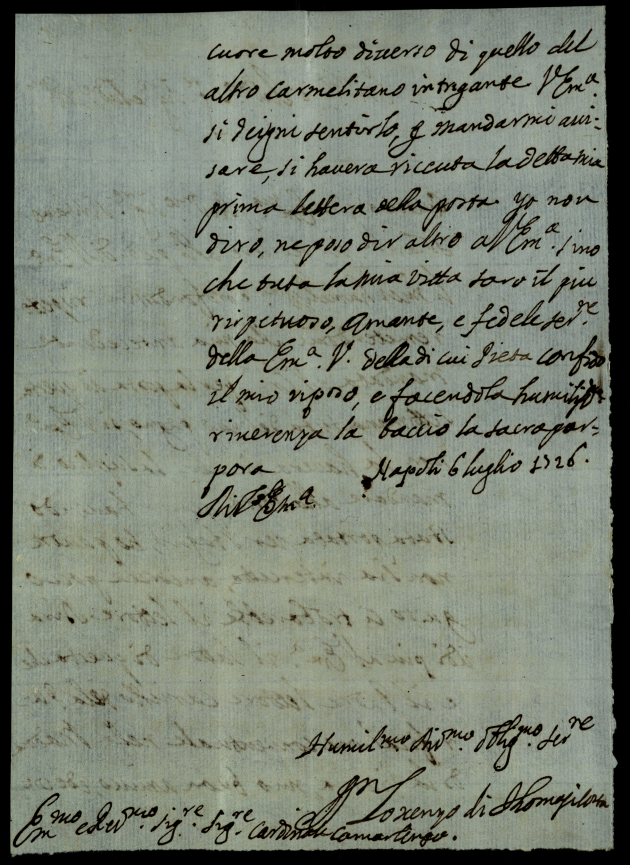 cuore molto diverso di quello del
altro Carmelitano intrigante V Em.ª
si degni sentirlo, e mandarmi avi-
sare, si havera riceuta la detta mia
prima lettera della posta yo non
diro, ne poso dir altro a V Em.ª sino
che tuta la mia vitta saro il piu
rispetuoso, amante, e fedele ser.re
della Em.ª V. della di cui Pieta confido
il mio riposo, e facendola humilis.ª
riverenza la baccio la sacra por-
pora Napoli 6 luglio 1726.
Di V. Em.ª
Humil.mo Div.mo Oblig.mo Ser.re
Lorenzo di
Em.mo e Rev.mo Sig.re Sig.re Cardinal Camarlengo.